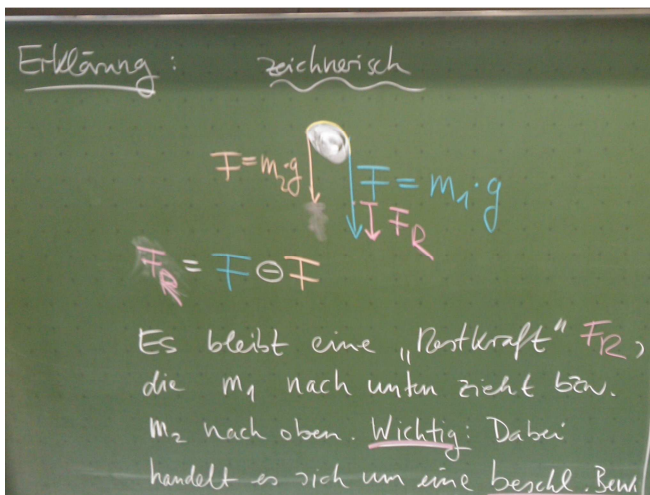 Erklärung: zeichnerisch
F = m₂·g
F = m₁·g
F_R
F_R = F ⊖ F
Es bleibt eine „Restkraft“ F_R,
die m₁ nach unten zieht bzw.
m₂ nach oben. Wichtig: Dabei
handelt es sich um eine beschl. Bew.